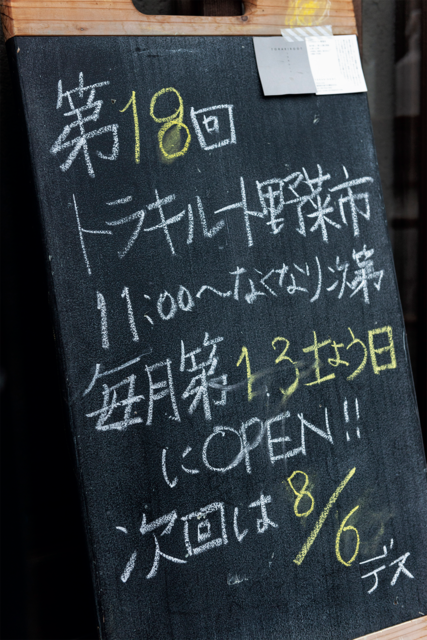 第18回
トラキルート野菜市
11:00〜なくなり次第
毎月第1 3土よう日
にOPEN!!
次回は8/6
デス